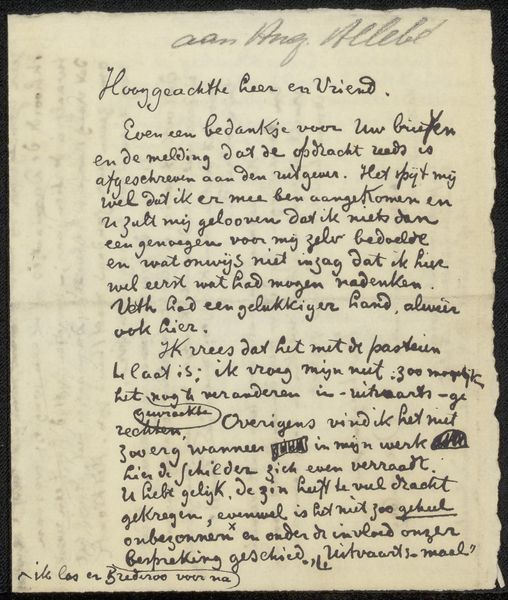 aan Aug. Allebé
Hooggeachte heer en Vriend.
Even een bedankje voor Uw brieven
en de melding dat de opdracht reeds is
afgeschreven aan den uitgever. Het spijt mij
wel dat ik er mee ben aangekomen en
U zult mij gelooven dat ik niets dan
een genoegen voor mij zelv bedoelde
en wat onwijs niet inzag dat ik hier
wel eerst wat had mogen nadenken.
Veth had een gelukkiger hand, alweer
ook hier.
Ik vrees dat het met de pasteien
te laat is; ik vroeg mijn zoo mogelijk
het nog te veranderen in - uitvaarts - ge
gewraakte
rechten. Overigens vind ik het niet
zoo erg wanneer in mijn werk
hier de schilder zich even verraadt.
U hebt gelijk, de zin heeft te veel dracht
gekregen, evenwel is het niet zoo geheel
onbezonnen x en onder de invloed onzer
bespreking geschied. "Uitvaarts-maal"
ik las er Brederoo voor na